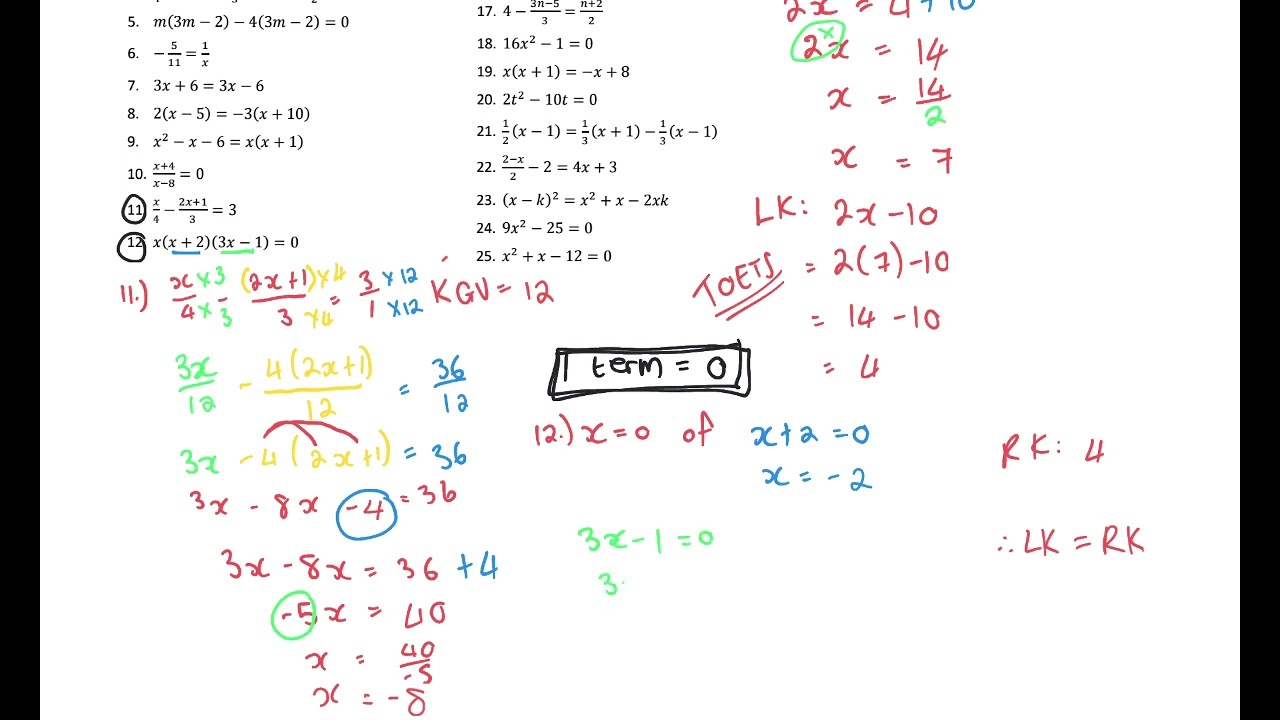 5. m(3m − 2) − 4(3m − 2) = 0
6. −5/11 = 1/x
7. 3x + 6 = 3x − 6
8. 2(x − 5) = −3(x + 10)
9. x² − x − 6 = x(x + 1)
10. (x+4)/(x−8) = 0
11. x/4 − (2x+1)/3 = 3
12. x(x + 2)(3x − 1) = 0
17. 4 − (3n−5)/3 = (n+2)/2
18. 16x² − 1 = 0
19. x(x + 1) = −x + 8
20. 2t² − 10t = 0
21. 1/2(x − 1) = 1/3(x + 1) − 1/3(x − 1)
22. (2−x)/2 − 2 = 4x + 3
23. (x − k)² = x² + x − 2xk
24. 9x² − 25 = 0
25. x² + x − 12 = 0
11.) x×3/4×3 − (2x+1)×4/3×4 = 3×12/1×12 KGV = 12
3x/12 − 4(2x+1)/12 = 36/12
3x − 4(2x+1) = 36
3x − 8x − 4 = 36
3x − 8x = 36 + 4
−5x = 40
x = 40/−5
x = −8
1 term = 0
12.) x = 0 of x + 2 = 0
x = −2
3x − 1 = 0
3
2x = 4 + 10
2x = 14
x = 14/2
x = 7
LK: 2x − 10
TOETS
= 2(7) − 10
= 14 − 10
= 4
RK: 4
∴ LK = RK